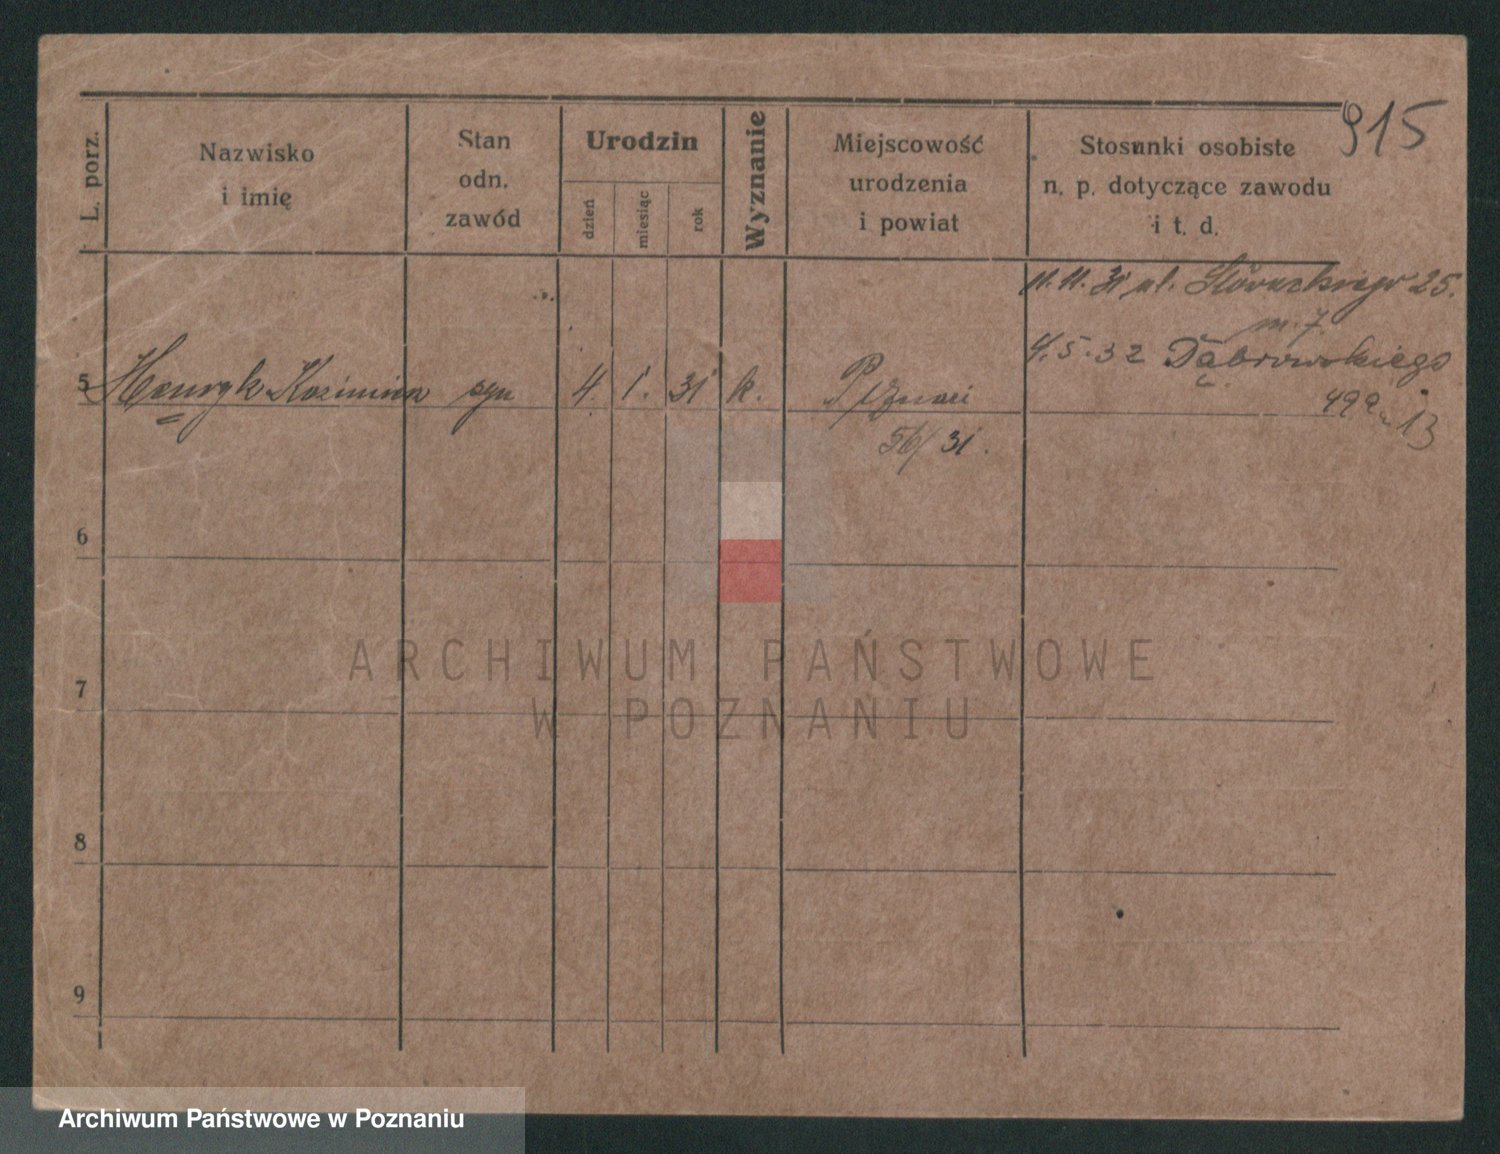 915
L. porz.
Nazwisko
i imię
Stan
odn.
zawód
Urodzin
dzień
miesiąc
rok
Wyznanie
Miejscowość
urodzenia
i powiat
Stosunki osobiste
n. p. dotyczące zawodu
i t. d.
11.11.31 ul. 25.
m. 7
4.5.32 Dąbrowskiego
13
5 Henryk Kazimierz syn 4 1. 31 k. Poznań
56/31.
6
7
8
9
ARCHIWUM PAŃSTWOWE
W POZNANIU
Archiwum Państwowe w Poznaniu